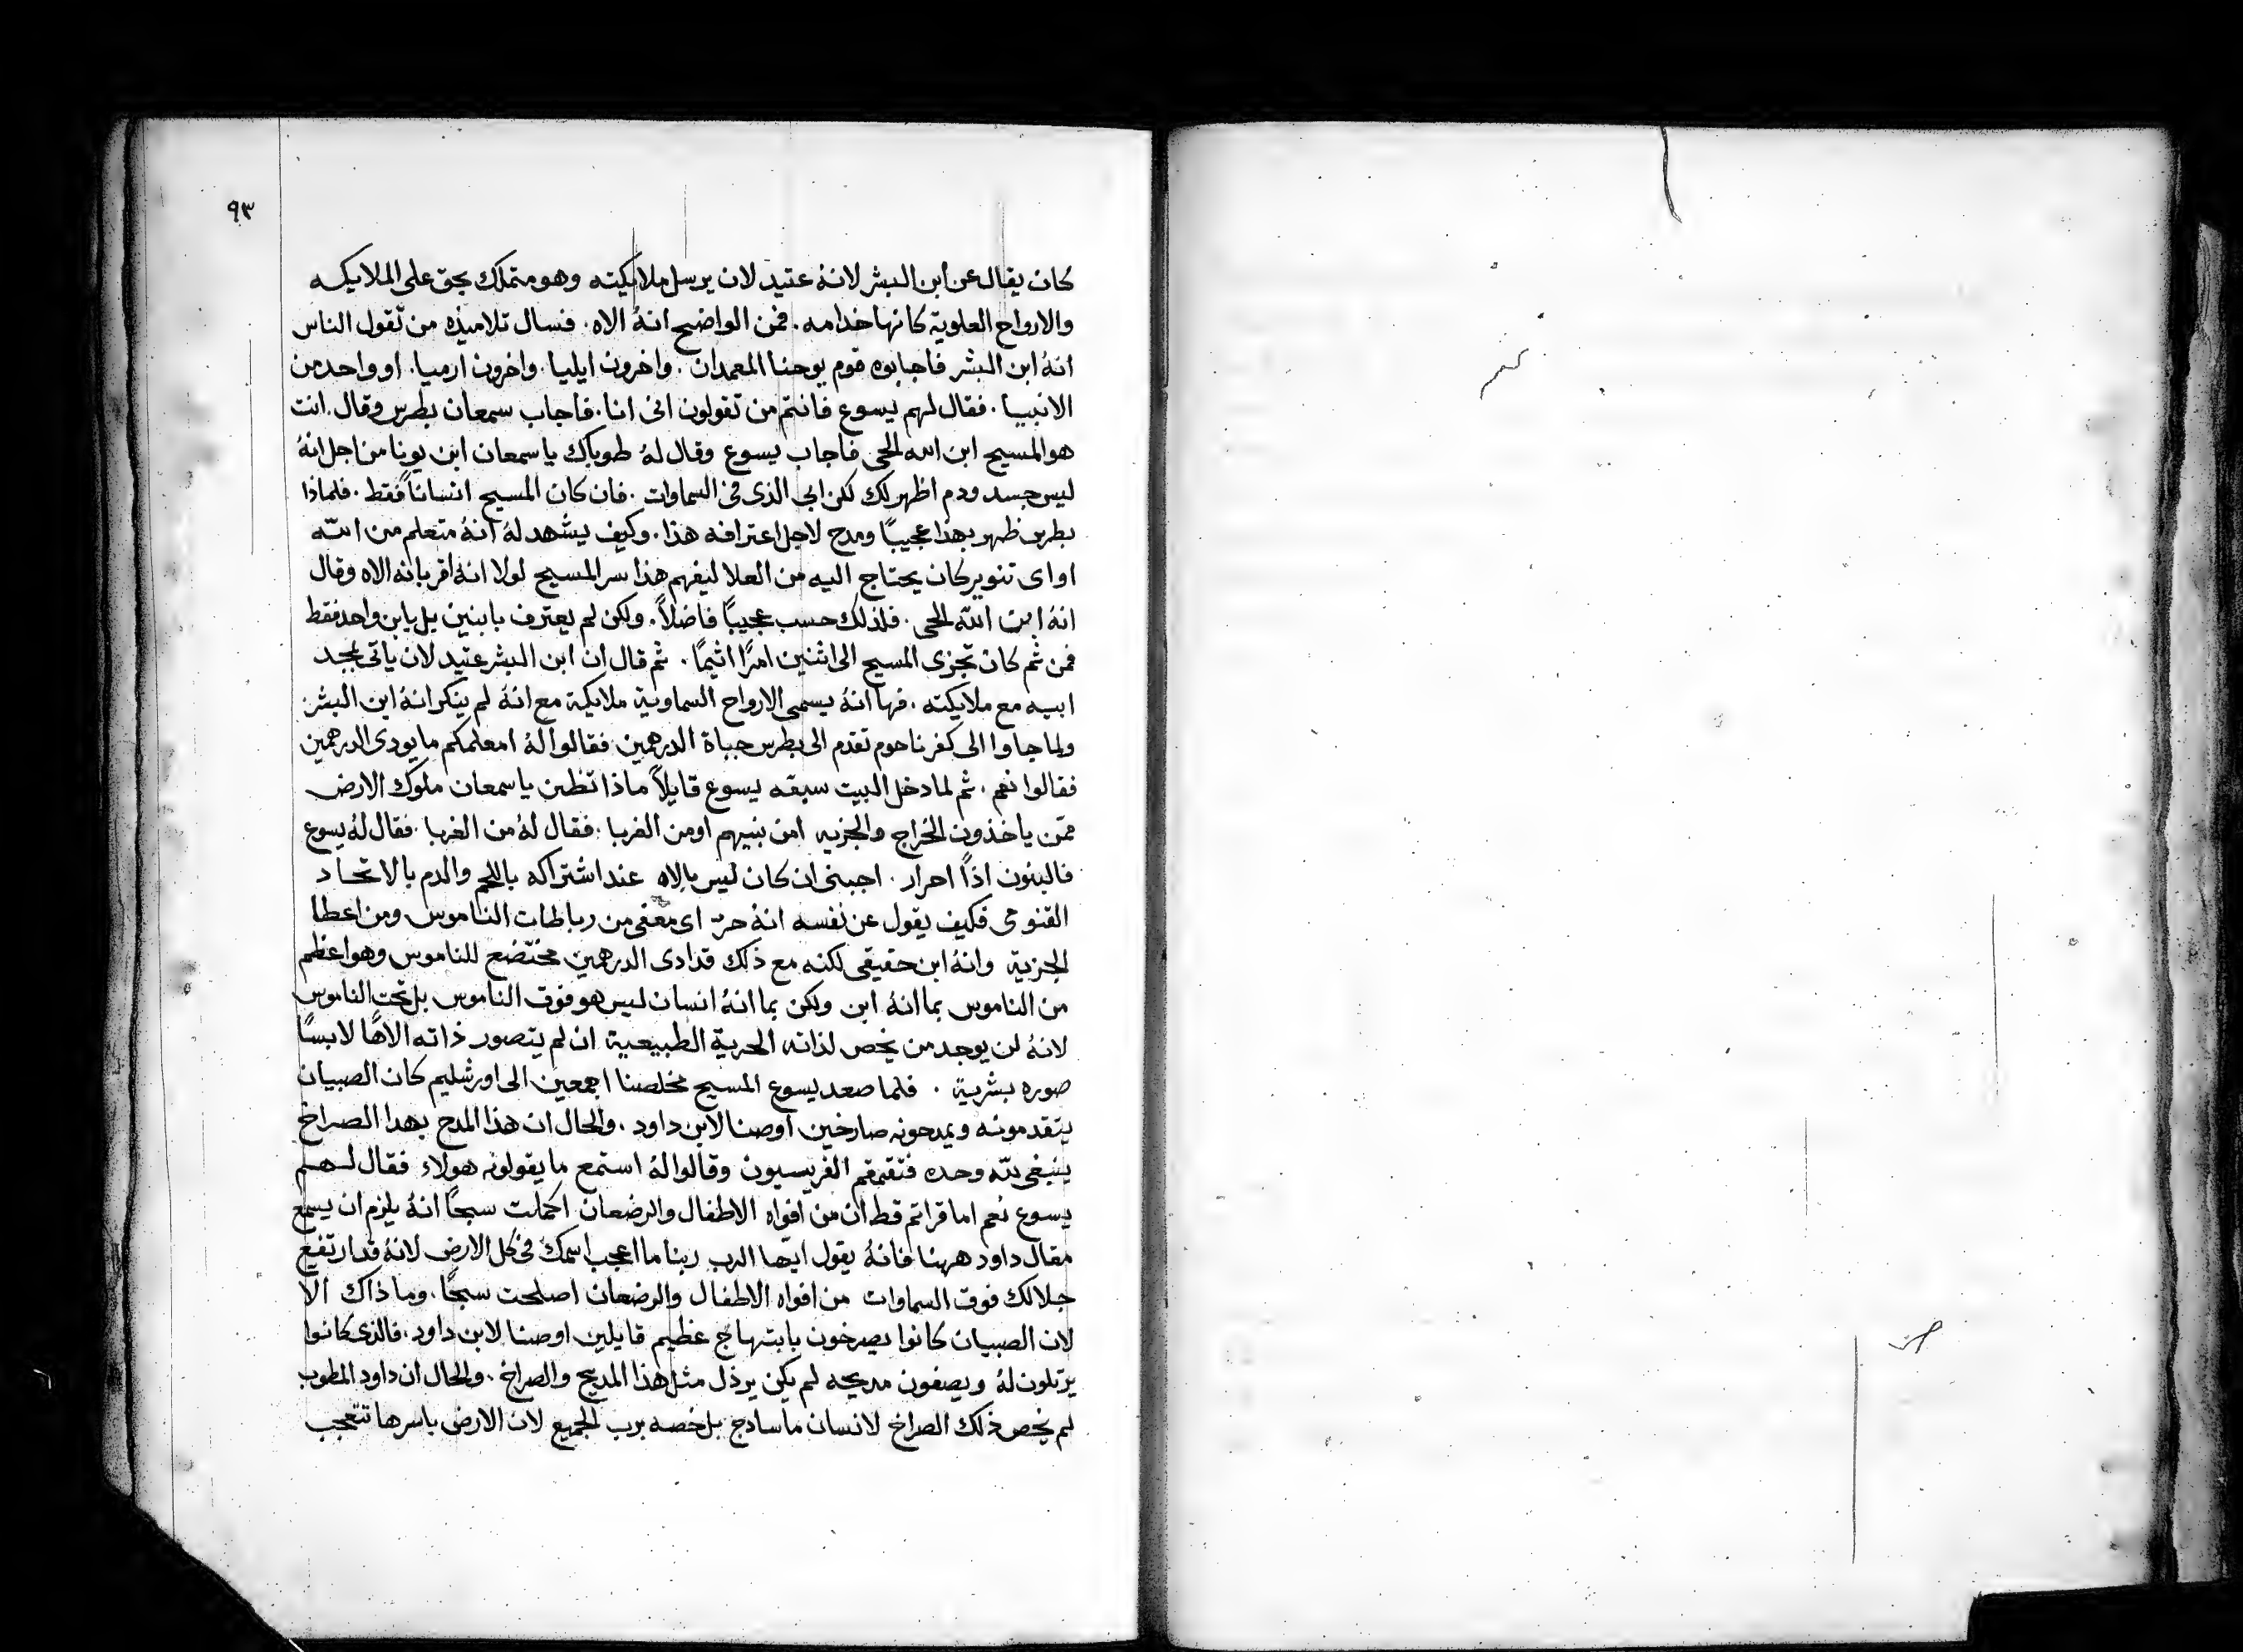 ٩٣
كان يقال عن ابن البشر لانهُ عتيد لان يرسل ملايكيته وهو متملك بحق على الملايكه
والارواح العلوية كانها خدامه . فمن الواضح انهُ الاه . فسال تلاميذه من تقول الناس
انهُ ابن البشر فاجابوه قوم يوحنا المعمدان . واخرون ايليا . واخرون ارميا . او واحد من
الانبيا . فقال لهم يسوع فانتم من تقولون انى انا . فاجاب سمعان بطرس وقال . انت
هو المسيح ابن الله الحى فاجاب يسوع وقال لهُ طوباك يا سمعان ابن يونا من اجل انهُ
ليس جسد ودم اظهر لك لكن ابى الذى فى السماوات . فان كان المسيح انساناً فقط . فلماذا
بطرس ظهر بهذا عجيبًا ومدح لاجل اعترافه هذا . وكيف يشهد لهُ انهُ متعلم من الله
او اى تنوير كان يحتاج اليه من العلا ليفهم هذا سر المسيح لولا انهُ اقر بانه الاه وقال
انهُ ابن الله الحى . فلذلك حسب عجيبًا فاضلاً . ولكن لم يعترف بابنين بل بابن واحد فقط
فمن ثم كان تجزى المسيح الى اثنين امرًا اثيمًا . ثم قال ان ابن البشر عتيد لان ياتى بمجد
ابيه مع ملايكته . فها انهُ يسمى الارواح السماوية ملايكية مع انهُ لم ينكر انهُ ابن البشر
ولما جاوا الى كفرناحوم تقدم الى بطرس جباة الدرهمين فقالوا لهُ امعلمكم ما يودى الدرهمين
فقالوا نعم . ثم لما دخل البيت سبقه يسوع قايلاً ماذا تظن يا سمعان ملوك الارض
ممّن ياخذون الخراج والجزيه امن بنيهم او من الغربا : فقال لهُ من الغربا . فقال لهُ يسوع
فالبنون اذاً احرار . اجبنى ان كان ليس بالاه عند اشتراكه باللحم والدم بالاتحاد
القنومى فكيف يقول عن نفسه انهُ حرّ اى معفى من رباطات الناموس ومن اعطا
الجزية وانهُ ابن حقيقى لكنه مع ذلك قد ادى الدرهمين مختضع للناموس وهو اعظم
من الناموس بما انهُ ابن ولكن بما انهُ انسان ليس هو فوق الناموس بل تحت الناموس
لانهُ لن يوجد من يخص لذاته الحرية الطبيعية ان لم يتصور ذاته الاهًا لابسًا
صوره بشرية . فلما صعد يسوع المسيح مخلصنا اجمعين الى اورشليم كان الصبيان
يتقدمونه ويمدحونه صارخين اوصنا لابن داود . والحال ان هذا المدح بهدا الصراخ
ينبغى لله وحده فتقمقم الفريسيون وقالوا لهُ استمع ما يقولونه هولاء فقال لهم
يسوع نعم اما قراتم قط ان من افواه الاطفال والرضعان اكملت سبحًا انهُ يلزم ان يسمع
مقال داود ههنا فانهُ يقول ايها الرب ربنا ما اعجب اسمك فى كل الارض لانهُ قد ارتفع
جلالك فوق السماوات من افواه الاطفال والرضعان اصلحت سبحًا . وما ذاك الا
لان الصبيان كانوا يصرخون بابتهاج عظيم قايلين اوصنا لابن داود . فالذى كانوا
يرتلون لهُ ويصفون مديحه لم يكن يرذل مثل هذا المديح والصراخ . والحال ان داود المطوب
لم يخص ذلك الصراخ لانسان ما سادج بل خصه برب الجميع لان الارض باسرها تتعجب